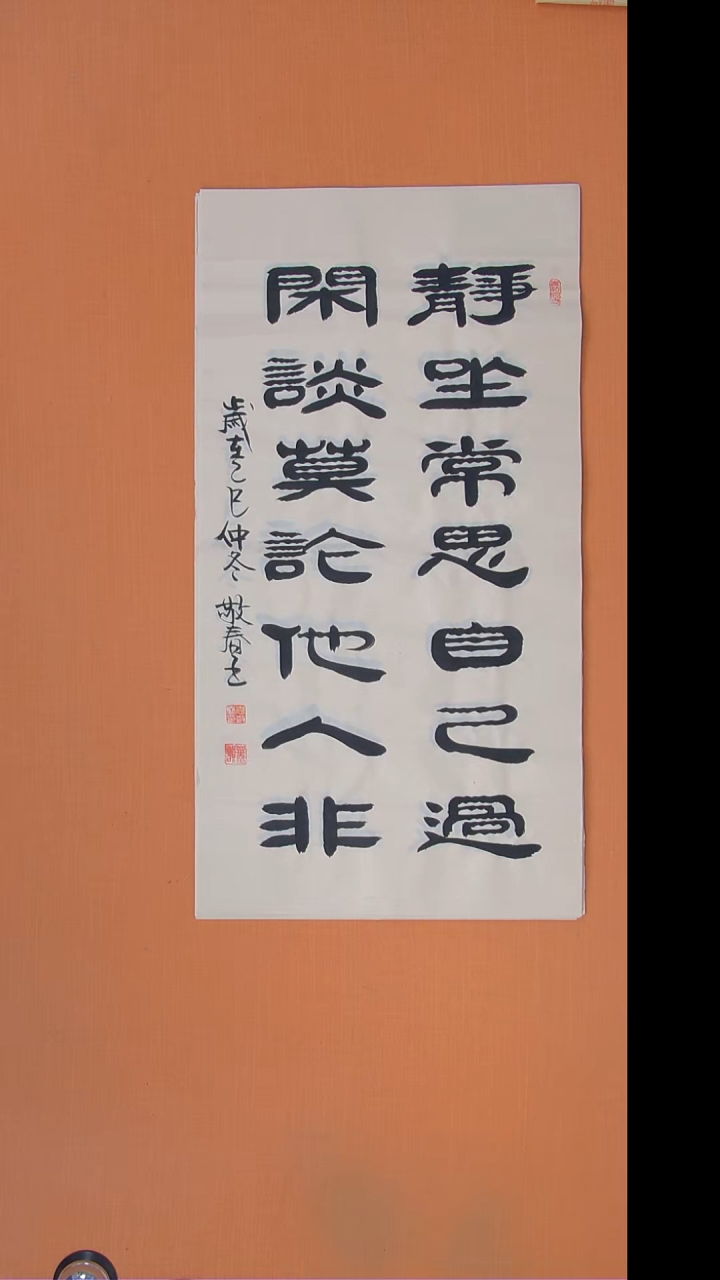 靜坐常思自己過
閑談莫論他人非
歲在乙巳仲冬 敬春书